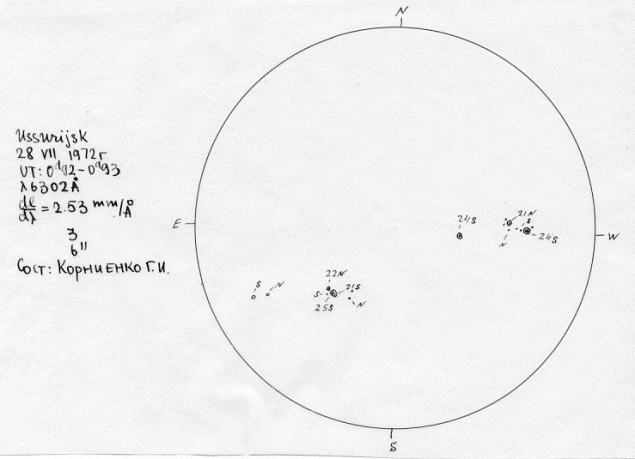 N
Ussurijsk
28 VII 1972г
UT: 0ᵈ92-0ᵈ93
λ6302Å
dl/dλ = 2.53 mm/Å
3
6"
Сост: Корниенко Г.И.
E
W
24S
21N
S
N
24S
S
N
22N
S
21S
25S
N
S